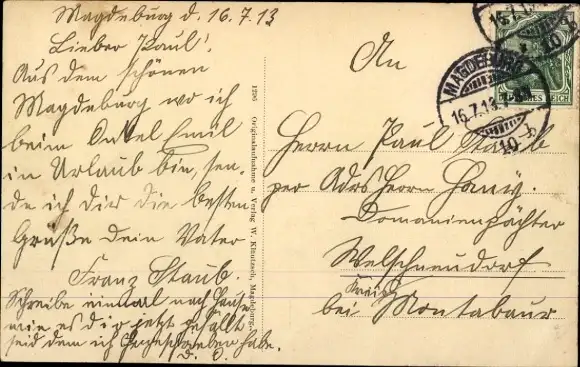 Magdeburg d. 16.7.13
Lieber Paul!
Aus dem schönen
Magdeburg wo ich
beim Onkel Emil
in Urlaub bin, sen-
de ich dir die besten
Grüße dein Vater
Franz Staub.
Schreibe einmal nach Hause
wie es dir jetzt gefällt
seid dem ich
d. O.
1296 Originalaufnahme u. Verlag W. Klautzsch, Magdeburg.
An
Herrn Paul Staub
per Adr. Herrn
Domänenpächter
Welschneudorf
Kreis
bei Montabaur
MAGDEBURG
16.7.13
10
DEUTSCHES REICH
16.7.13
10